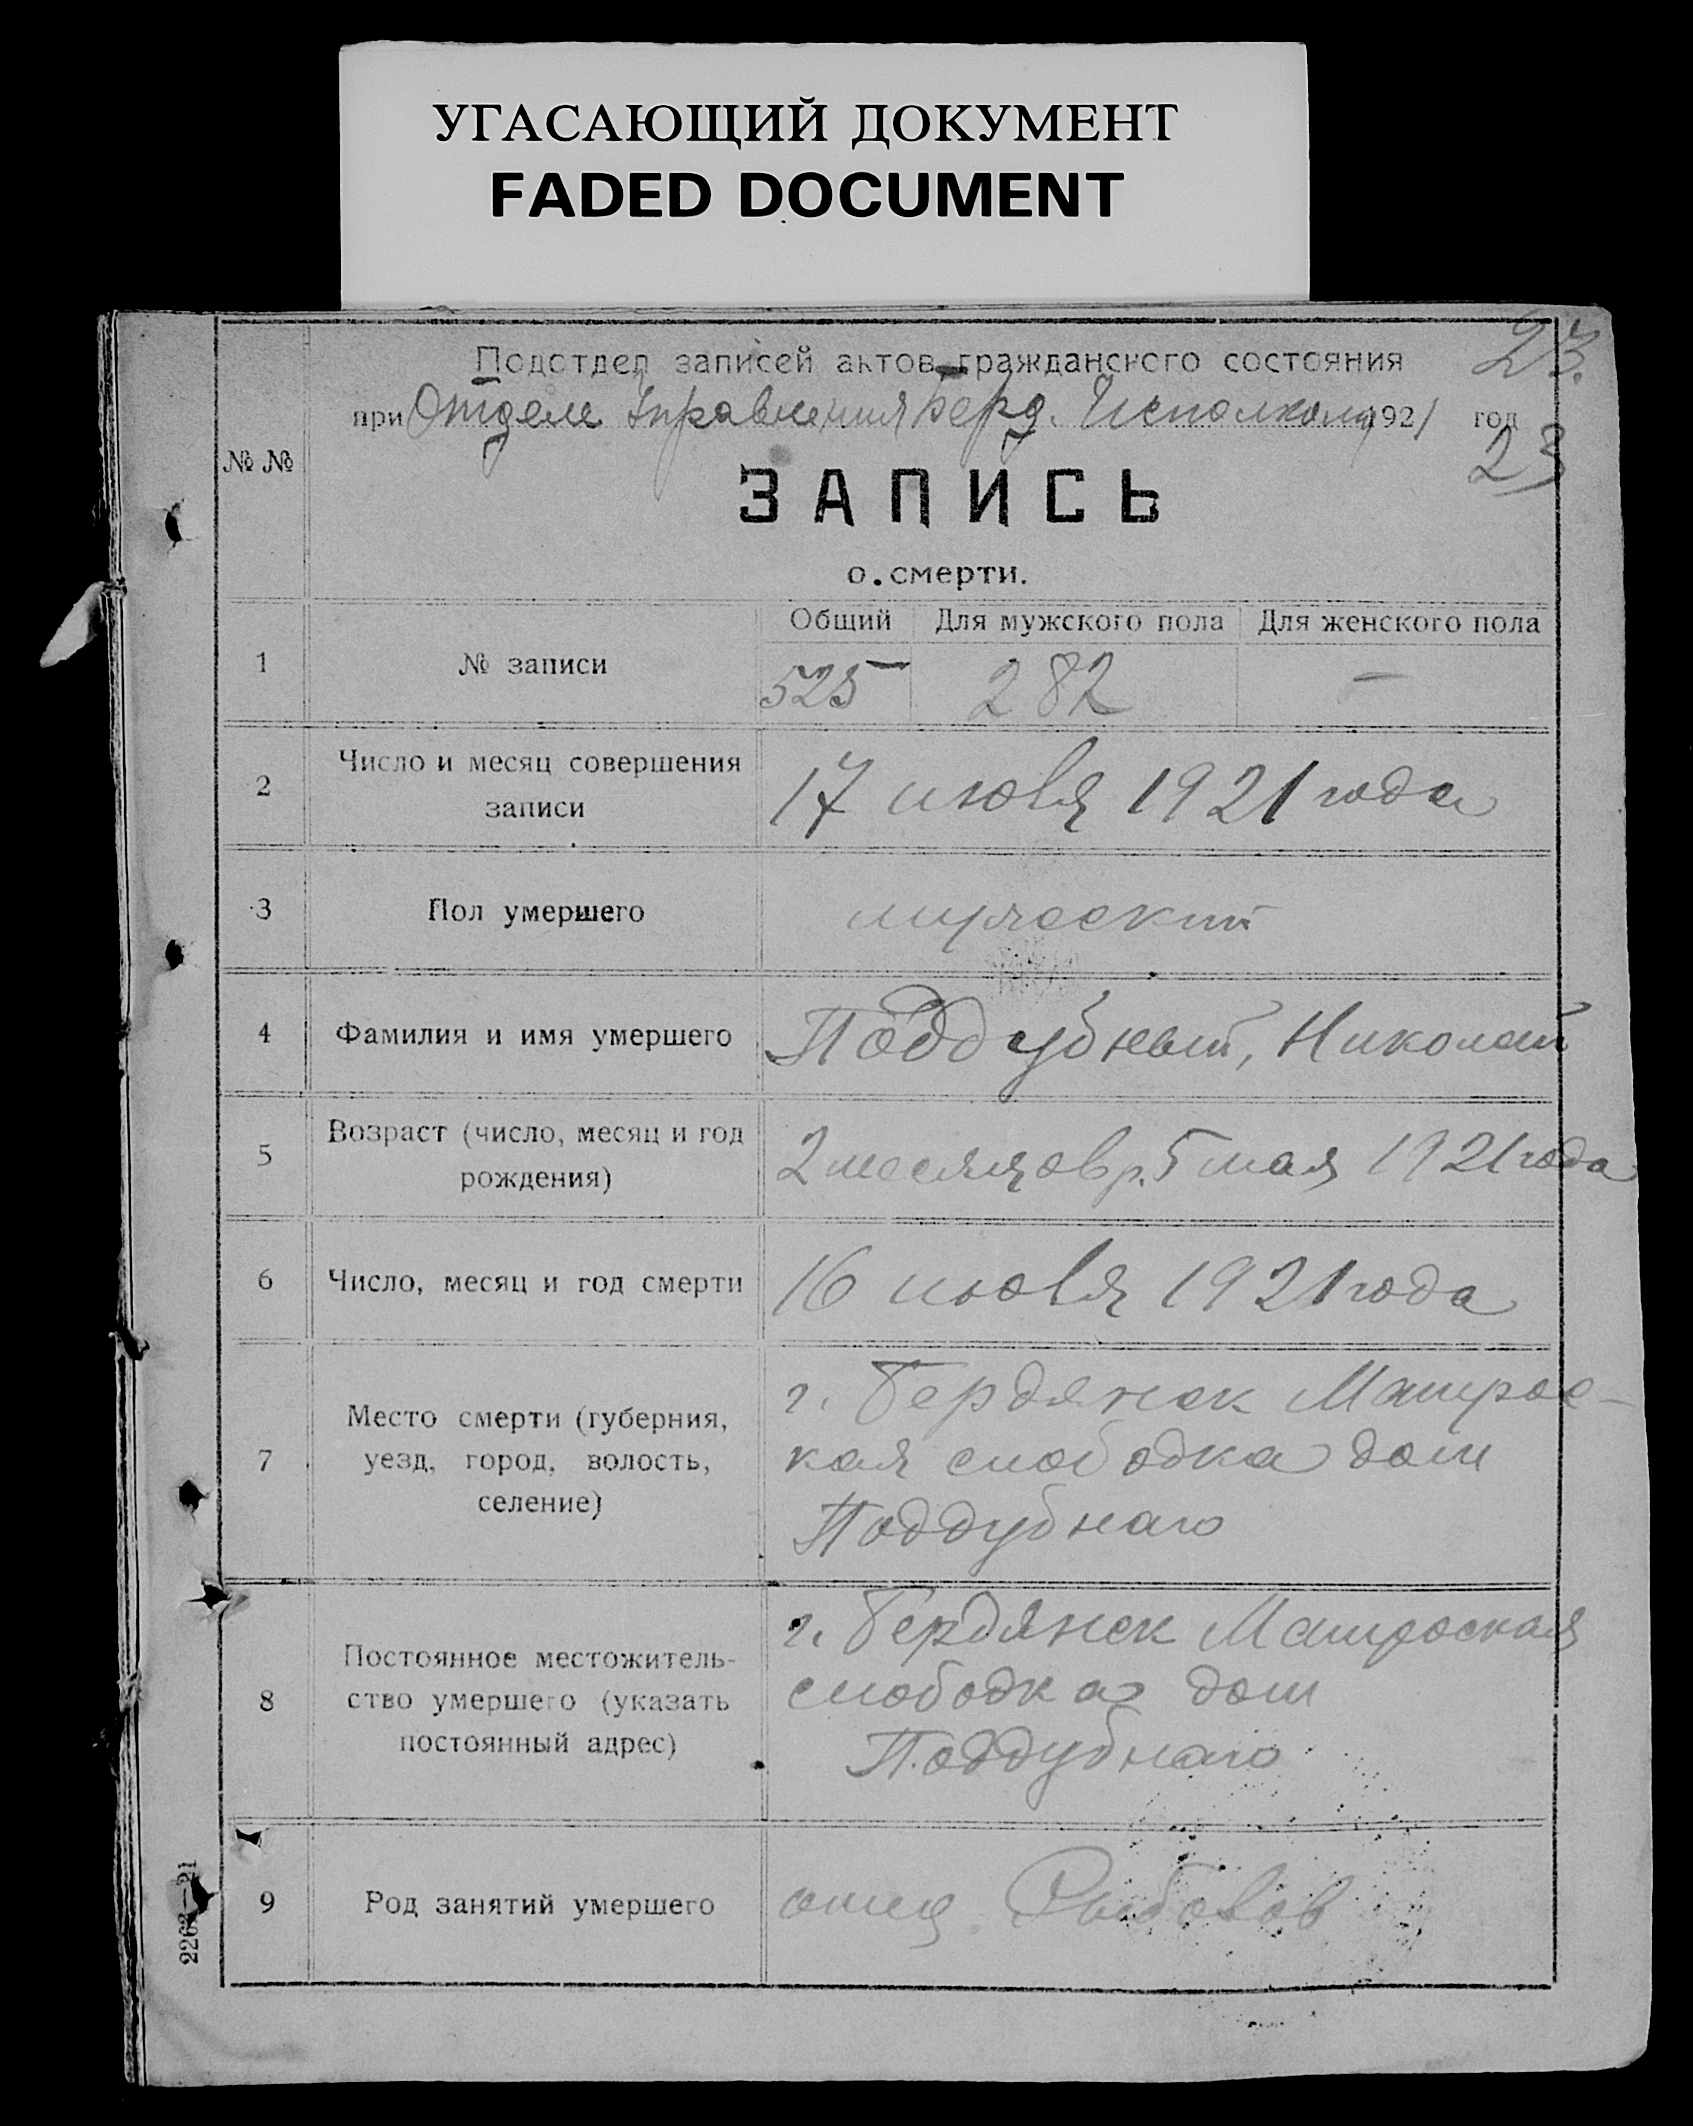 УГАСАЮЩИЙ ДОКУМЕНТ
FADED DOCUMENT
23.
Подотдел записей актов гражданского состояния
при Отделе Управления Берд. Исполкома 1921 год
23
№ №
ЗАПИСЬ
о смерти.
Общий Для мужского пола Для женского пола
1 № записи 525 282 —
2 Число и месяц совершения
записи
17 июля 1921 года
3 Пол умершего мужеский
4 Фамилия и имя умершего Поддубный, Николай
5 Возраст (число, месяц и год
рождения)
2 месяцов р. 5 мая 1921 года
6 Число, месяц и год смерти 16 июля 1921 года
7 Место смерти (губерния,
уезд, город, волость,
селение)
г. Бердянск Матрос-
кая слободка дом
Поддубнаго
8 Постоянное местожитель-
ство умершего (указать
постоянный адрес)
г. Бердянск Матроская
слободка дом
Поддубнаго
9 Род занятий умершего отец Рыболов
2263—21